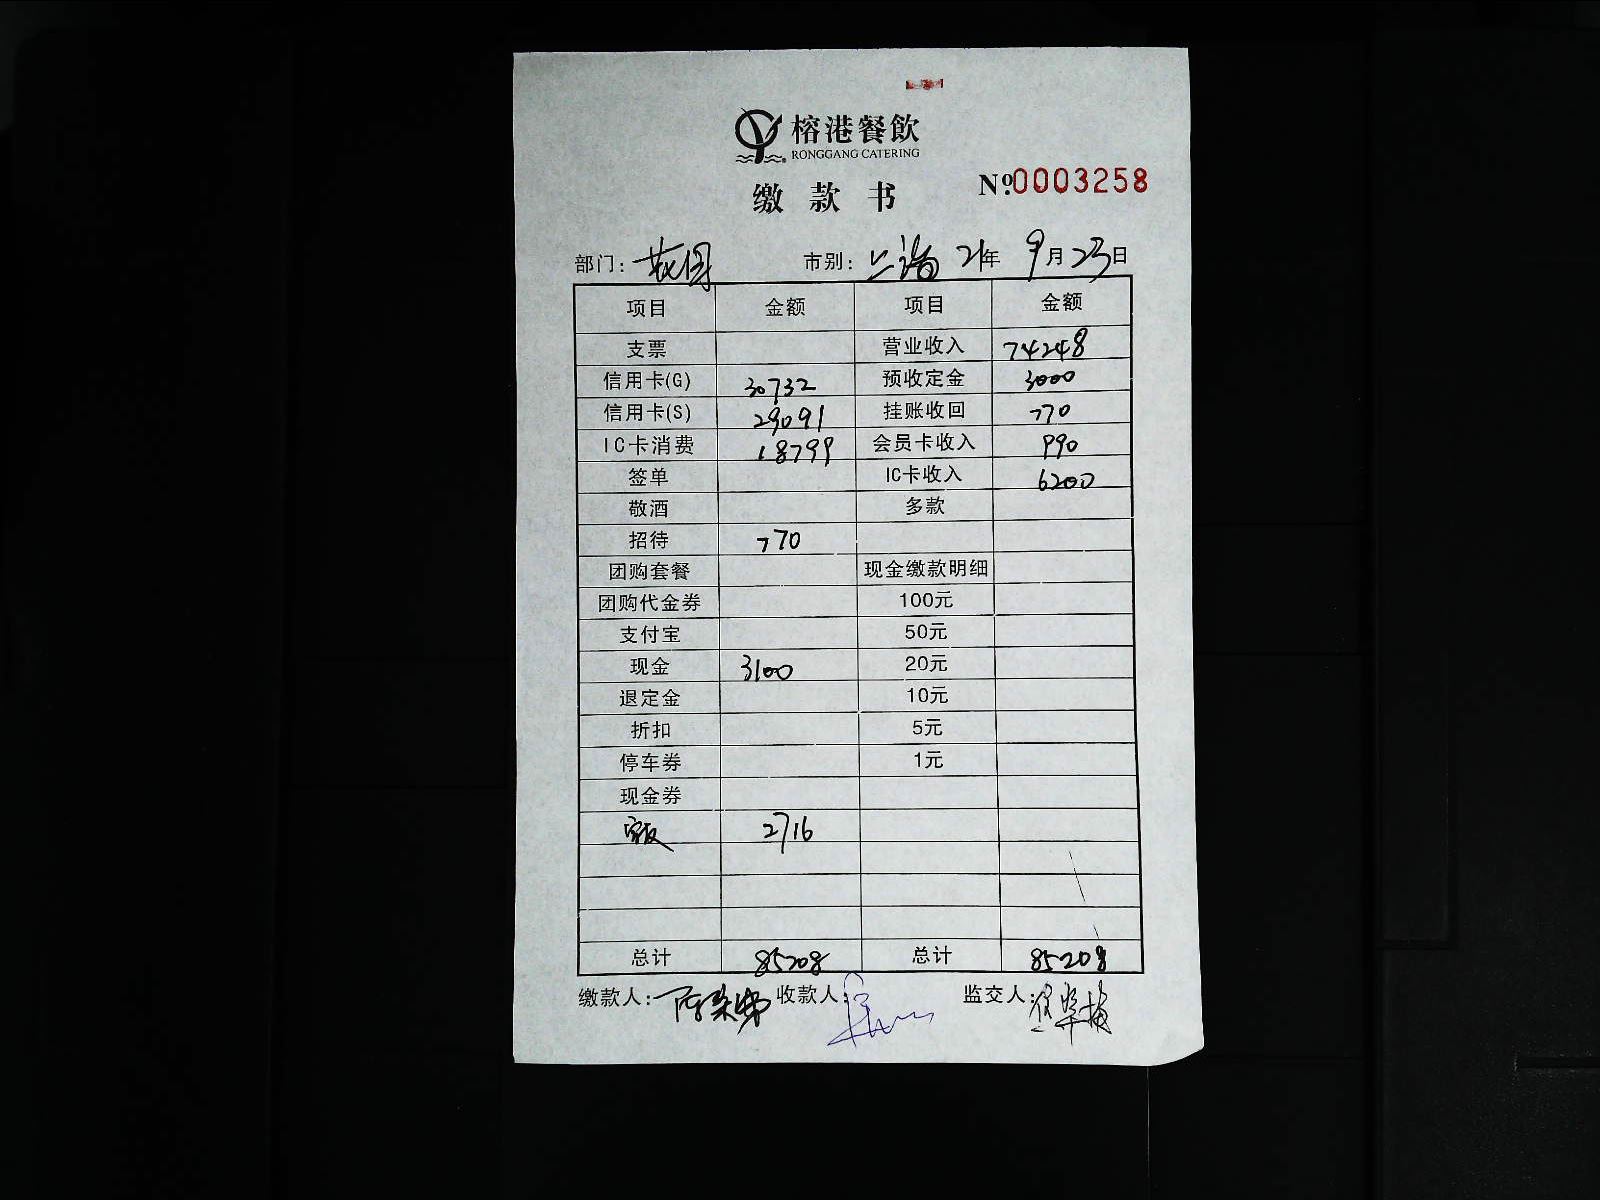 榕港餐飲
RONGGANG CATERING
缴款书
№0003258
部门: 市别: 上海 21年 9月23日
项目 金额 项目 金额
支票 营业收入 74248
信用卡(G) 30732 预收定金 3000
信用卡(S) 29091 挂账收回 770
IC卡消费 18799 会员卡收入 990
签单 IC卡收入 6200
敬酒 多款
招待 770
团购套餐 现金缴款明细
团购代金券 100元
支付宝 50元
现金 3100 20元
退定金 10元
折扣 5元
停车券 1元
现金券
2716
总计 85208 总计 85208
缴款人: 收款人: 监交人: